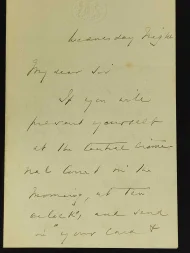 Wednesday Night
My dear Sir
If you will
present yourself
at the
in the
morning, at ten
o'clock, and send
your card &